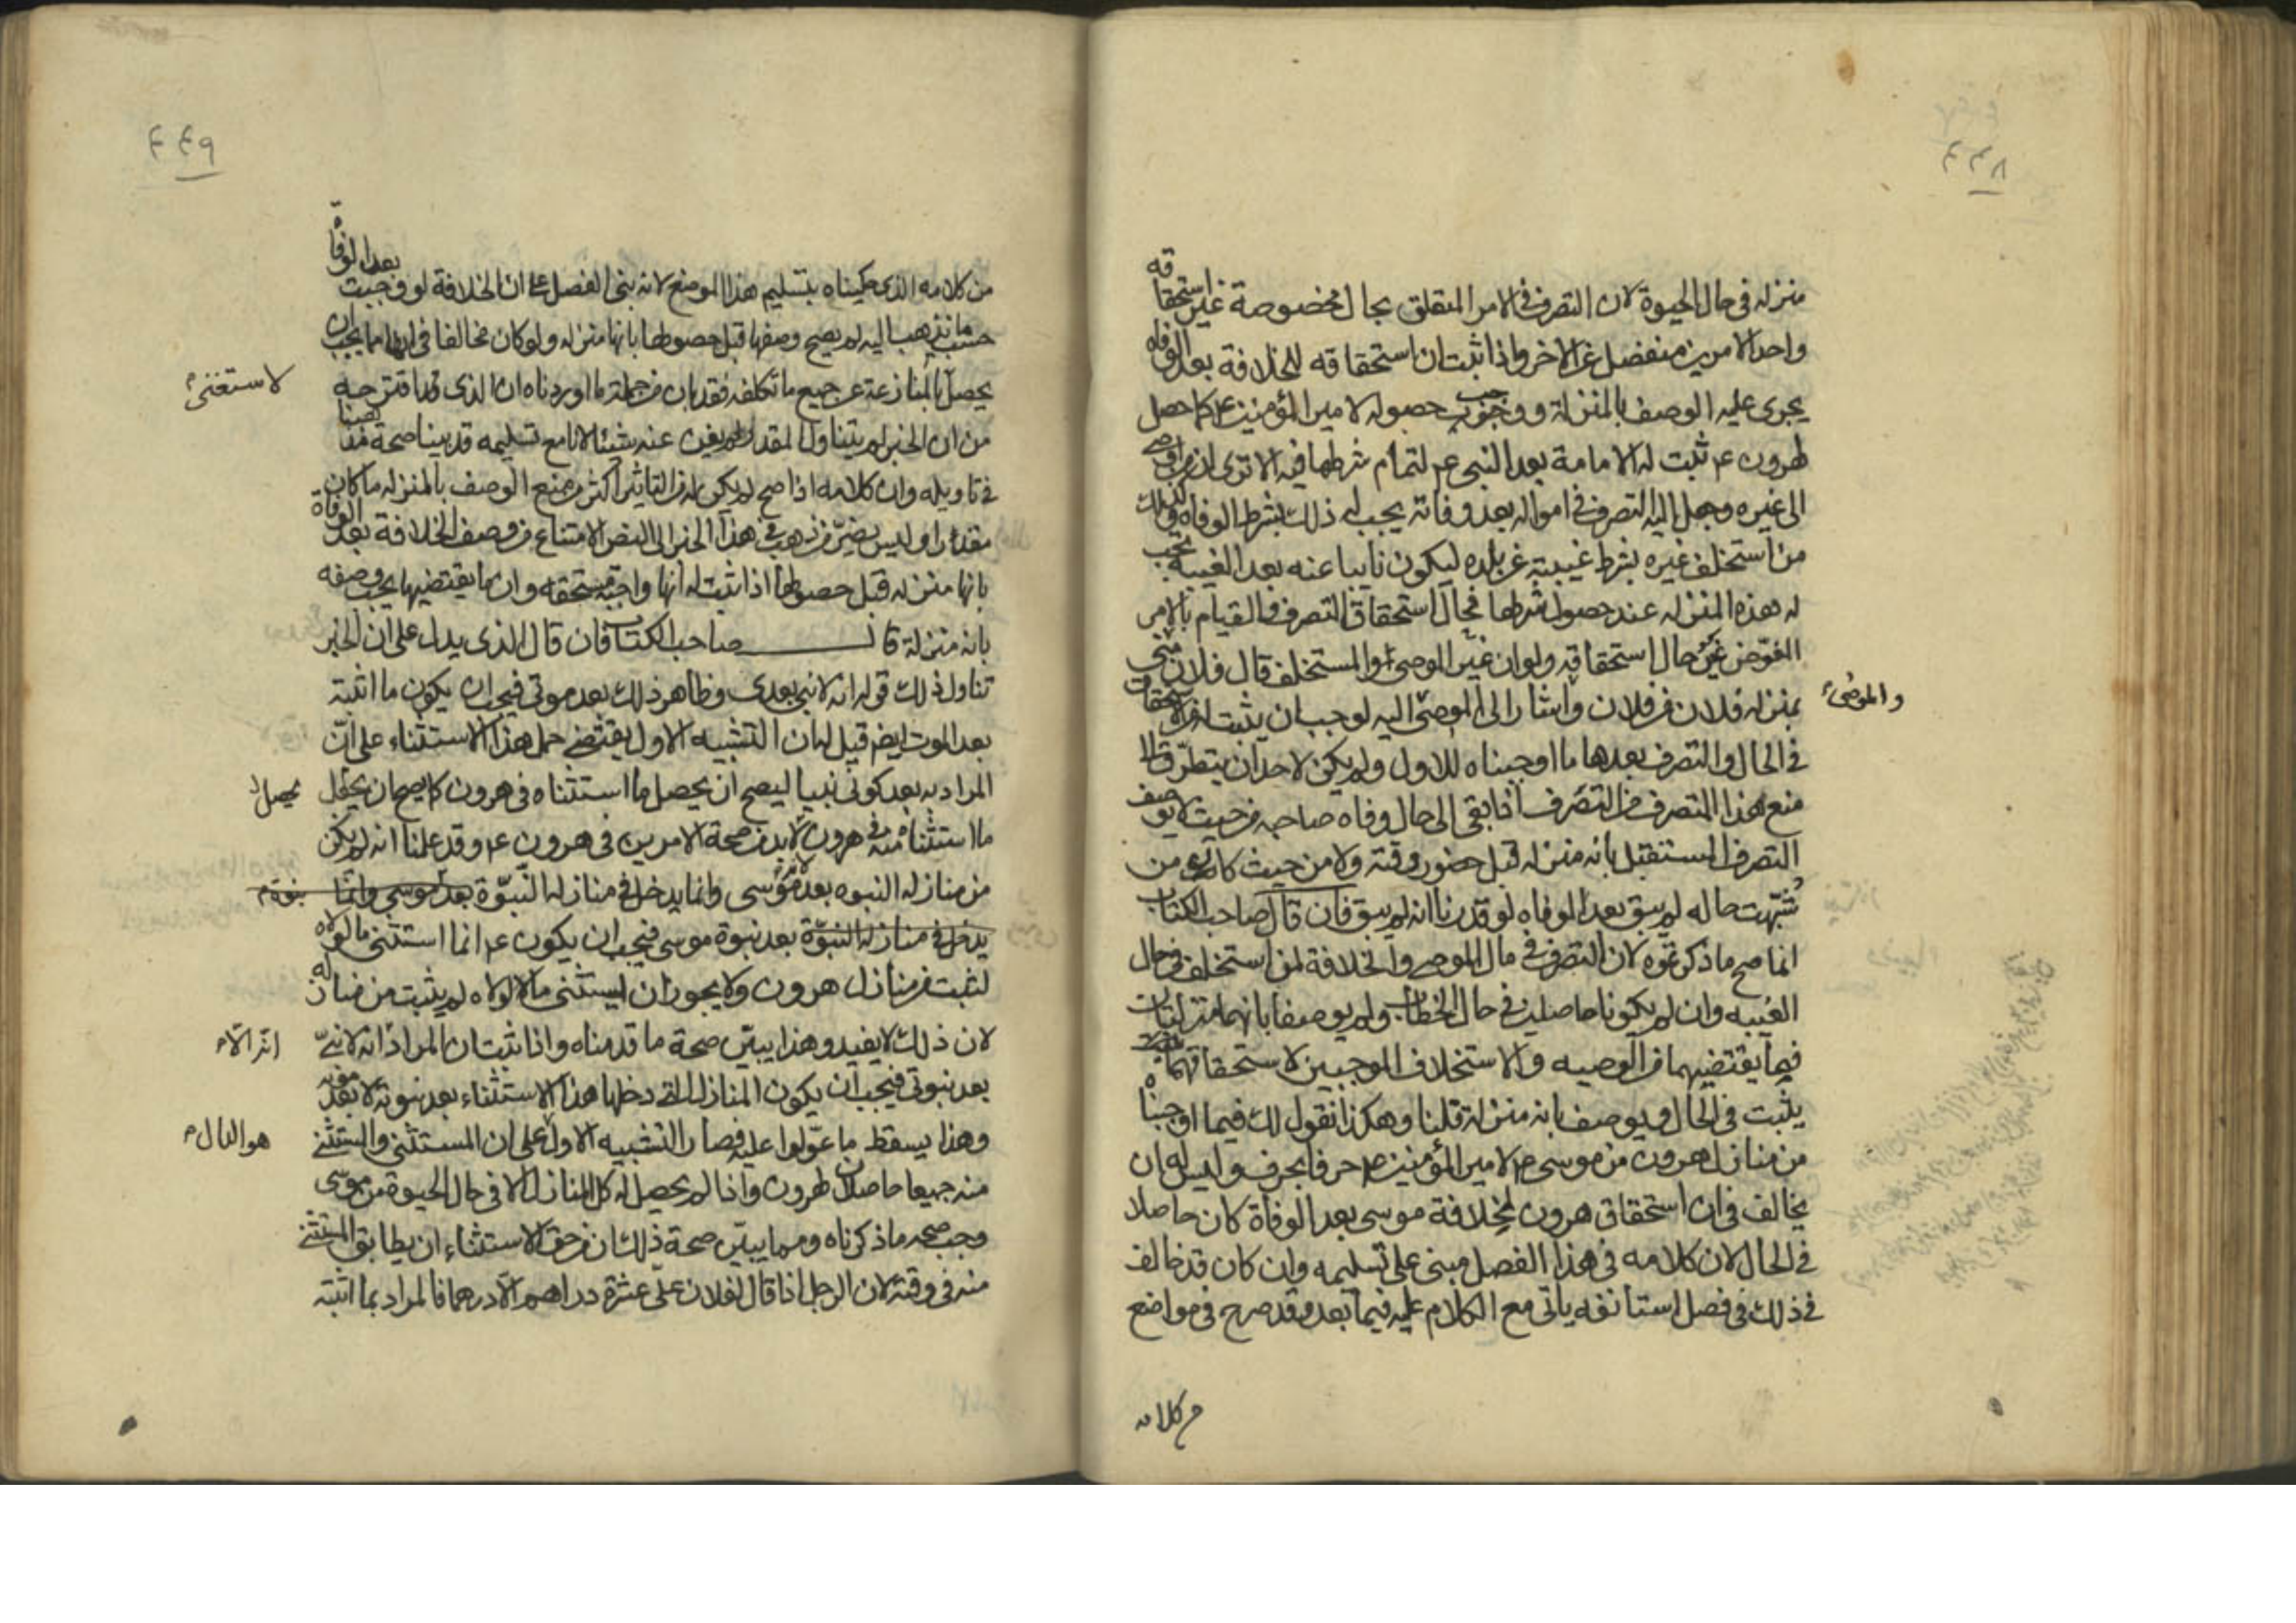 ٤٤٨
منزله في حال الحيوة لان التصرف في الامر المتعلق بحال مخصوصة غير استحقاقه
واحد الامرين منفصل عن الاخر واذا ثبت ان استحقاقه للخلافة بعد الوفاه
يجري عليه الوصف بالمنزلة ووجب حصوله لامير المؤمنين ع كما حصل
لهرون ع ثبت له الامامة بعد النبي ع لتمام شرطها فيه الا ترى ان من اوصى
الى غيره وجعل اليه التصرف في امواله بعد وفاته يجب له ذلك بشرط الوفاه وكذلك
من استخلف غيره بشرط غيبته عن بلده ليكون نايبا عنه بعد الغيبة يجب
له هذه المنزله عند حصول شرطها فحال استحقاق التصرف والقيام بالامر
المفوض غير حال استحقاقه ولو ان غير الموصى او المستخلف قال فلان مني
والموصى
بمنزله فلان من فلان واشار الى الموصى اليه لوجب ان يثبت له من الاستحقاق
في الحال والتصرف بعدها ما اوجبناه للاول ولم يكن لاحد ان يتطرق الى
منع هذا المتصرف من التصرف اذا بقي الى حال وفاه صاحبه من حيث لا يوصف
التصرف المستقبل بانه منزله قبل حضور وقته ولا من حيث كان من
شبهت حاله له لم يبق بعد الوفاه لو قدرنا انه لم يبق فان قال صاحب الكتاب
انما صح ما ذكرتموه لان التصرف في مال الموصي والخلافة لمن استخلف في حال
الغيبه وان لم يكونا حاصلين في حال الخطاب ولم يوصفا بانهما منزلتان
فيما يقتضيهما من الوصيه والاستخلاف الموجبين لاستحقاقهما
يثبت في الحال ويوصف بانه منزلة قلنا وهكذا نقول لك فيما اوجبناه
من منازل هرون من موسى ع لامير المؤمنين ع حرفا بحرف وليس له ان
يخالف في ان استحقاق هرون لخلافة موسى بعد الوفاة كان حاصلا
في الحال لان كلامه في هذا الفصل مبني على تسليمه وان كان قد خالف
في ذلك في فصل استأنفه ياتي مع الكلام عليه فيما بعد وقد صرح في مواضع
من كلامه
٤٤٩
من كلامه الذي حكيناه بتسليم هذا الموضع لانه بنى الفصل على ان الخلافة لو وجبت بعد الوفاة
حسب ما نذهب اليه لم يصح وصفها قبل حصولها بانها منزله ولو كان مخالفا في انها مما يجب ان
لاستغنى
يحصل بالمنازعة عن جميع ما تكلفه فقد بان من جملة ما اوردناه ان الذي قد اقترحه
من ان الخبر لم يتناول المقدر لم يغن عنه شيئا لانا مع تسليمه قد بينا صحة مقصدنا
في تاويله وان كلامه اذا صح لم يكن له من التاثير اكثر من منع الوصف بالمنزله ما كان
مقدرا وليس يضر من ذهب في هذا الخبر الى النص الامتناع من وصف الخلافة بعد الوفاة
بانها منزله قبل حصولها اذا ثبت له انها واجبة مستحقه وان ما يقتضيها يجب وصفه
بانه منزلة قال صاحب الكتاب فان قال الذي يدل على ان الخبر
تناول ذلك قوله انه لا نبي بعدي وظاهر ذلك بعد موتي فيجب ان يكون ما اثبته
بعد الموت ايضا قيل له ان التشبيه الاول يقتضي حمل هذا الاستثناء على ان
المراد به بعد كوني نبيا ليصح ان يحصل ما استثناه في هرون كما يصح ان يجعل
يحصل
ما استثناه منه في هرون لابد من صحة الامرين في هرون ع وقد علمنا انه لم يكن
من منازله النبوه بعد موسى وانما يدخل في منازله النبوة بعد موسى وانما
نبوة
يدخل في منازله النبوة بعد نبوة موسى فيجب ان يكون ع انما استثنى ما لولاه
لثبت من منازل هرون ولا يجوز ان يستثنى ما لولاه لم يثبت من منازله
لان ذلك لا يفيد وهذا يبين صحة ما قدمناه واذا ثبت ان المراد انه لا نبي
بعد نبوتي فيجب ان يكون المنازل التي دخلها هذا الاستثناء بعد نبوته لا بعد موته
وهذا يسقط ما عولوا عليه فصار التشبيه الاول على ان المستثنى والمستثنى
هو الدال
منه جميعا حاصلان لهرون واذا لم يحصل له كل المنازل الا في حال الحيوة من موسى
وجب صحه ما ذكرناه ومما يبين صحة ذلك ان من حق الاستثناء ان يطابق المستثنى
منه في وقته لان الرجل اذا قال لفلان علي عشرة دراهم الا درهما فالمراد بما اثبته